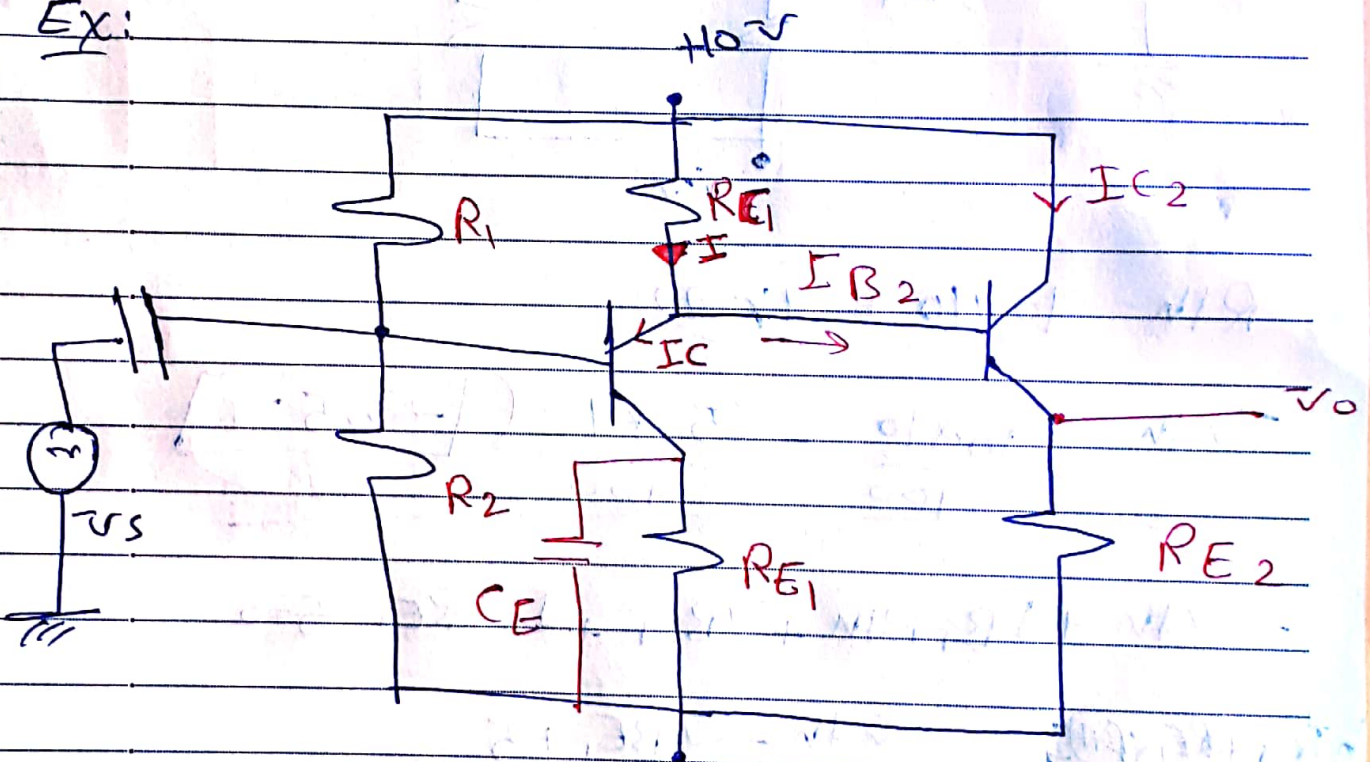 Ex:
+10V
R1
RE1
I
IC2
IB2
IC
Vo
R2
Vs
CE
RE1
RE2